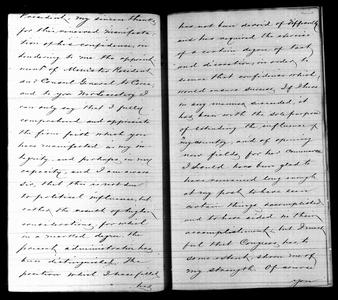 President - my sincere thanks
for this renewed manifesta-
tion of his confidence, in
tendering to me the appoint-
ment of Minister Resident
and Consul General to Corea,
and to you Mr Secretary I
can only say that I fully
comprehend and appreciate
the firm faith which you
have manifested in my in-
tegrity and perhaps, in my
capacity, and I am aware
sir, that this is not due
to political influence, but
rather the result of higher
considerations, for which
in a marked degree the
present administration has
been distinguished. The
position which I have filled
has
has not been devoid of difficulty
and has required the exercise
of a certain degree of tact
and discretion, in order, to
insure that confidence which
would ensure success. If I have
in any manner succeeded, it
has been with the sole purpose
of extending the influence of
my country, and of opening
new fields, for her commerce
I should have been glad to
have remained long enough
at my post, to have seen
certain things accomplished
and to have aided in them
but I
that Congress, has to
some extent, shorn me of
my strength. Of course
you